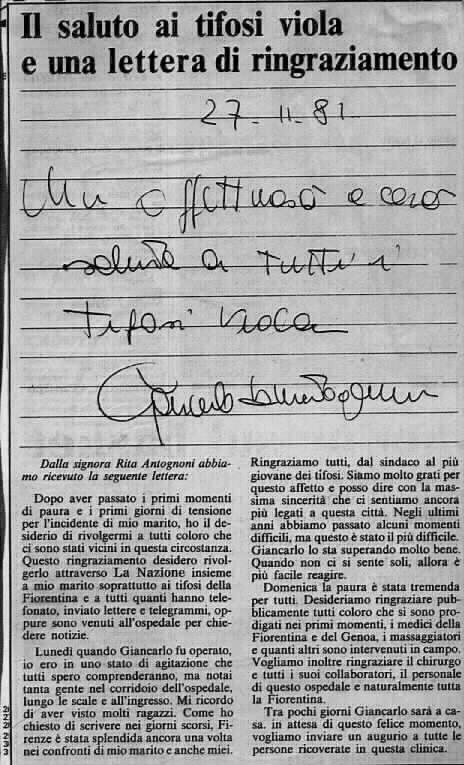 Il saluto ai tifosi viola
e una lettera di ringraziamento
27-11-81
Un affettuoso e caro
saluto a tutti i
tifosi viola
Giancarlo Antognoni
Dalla signora Rita Antognoni abbia-
mo ricevuto la seguente lettera:
Dopo aver passato i primi momenti
di paura e i primi giorni di tensione
per l'incidente di mio marito, ho il de-
siderio di rivolgermi a tutti coloro che
ci sono stati vicini in questa circostanza.
Questo ringraziamento desidero rivol-
gerlo attraverso La Nazione insieme
a mio marito soprattutto ai tifosi della
Fiorentina e a tutti quanti hanno tele-
fonato, inviato lettere e telegrammi, op-
pure sono venuti all'ospedale per chie-
dere notizie.
Lunedì quando Giancarlo fu operato,
io ero in uno stato di agitazione che
tutti spero comprenderanno, ma notai
tanta gente nel corridoio dell'ospedale,
lungo le scale e all'ingresso. Mi ricordo
di aver visto molti ragazzi. Come ho
chiesto di scrivere nei giorni scorsi, Fi-
renze è stata splendida ancora una volta
nei confronti di mio marito e anche miei.
Ringraziamo tutti, dal sindaco al più
giovane dei tifosi. Siamo molto grati per
questo affetto e posso dire con la mas-
sima sincerità che ci sentiamo ancora
più legati a questa città. Negli ultimi
anni abbiamo passato alcuni momenti
difficili, ma questo è stato il più difficile.
Giancarlo lo sta superando molto bene.
Quando non ci si sente soli, allora è
più facile reagire.
Domenica la paura è stata tremenda
per tutti. Desideriamo ringraziare pub-
blicamente tutti coloro che si sono pro-
digati nei primi momenti, i medici della
Fiorentina e del Genoa, i massaggiatori
e quanti altri sono intervenuti in campo.
Vogliamo inoltre ringraziare il chirurgo
e tutti i suoi collaboratori, il personale
di questo ospedale e naturalmente tutta
la Fiorentina.
Tra pochi giorni Giancarlo sarà a ca-
sa. in attesa di questo felice momento,
vogliamo inviare un augurio a tutte le
persone ricoverate in questa clinica.